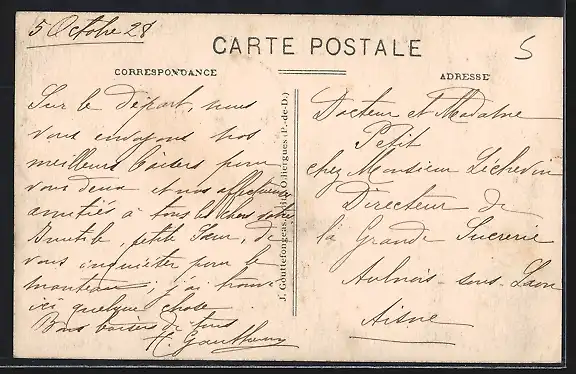 5 Octobre 28
CARTE POSTALE
5
CORRESPONDANCE
ADRESSE
Sur le départ, nous
vous envoyons nos
meilleurs baisers pour
vous deux et nos affectueuses
amitiés à tous
Inutile, petite Sœur, de
vous inquiéter pour le
manteau; j'ai trouvé
ici quelque chose.
Bons baisers de tous
J. Gouttefongeas, Edit., Olliergues (P.-de-D.)
Docteur et Madame
Petit
chez Monsieur Léchevin
Directeur de
la Grande Sucrerie
Aulnois-sous-Laon
Aisne